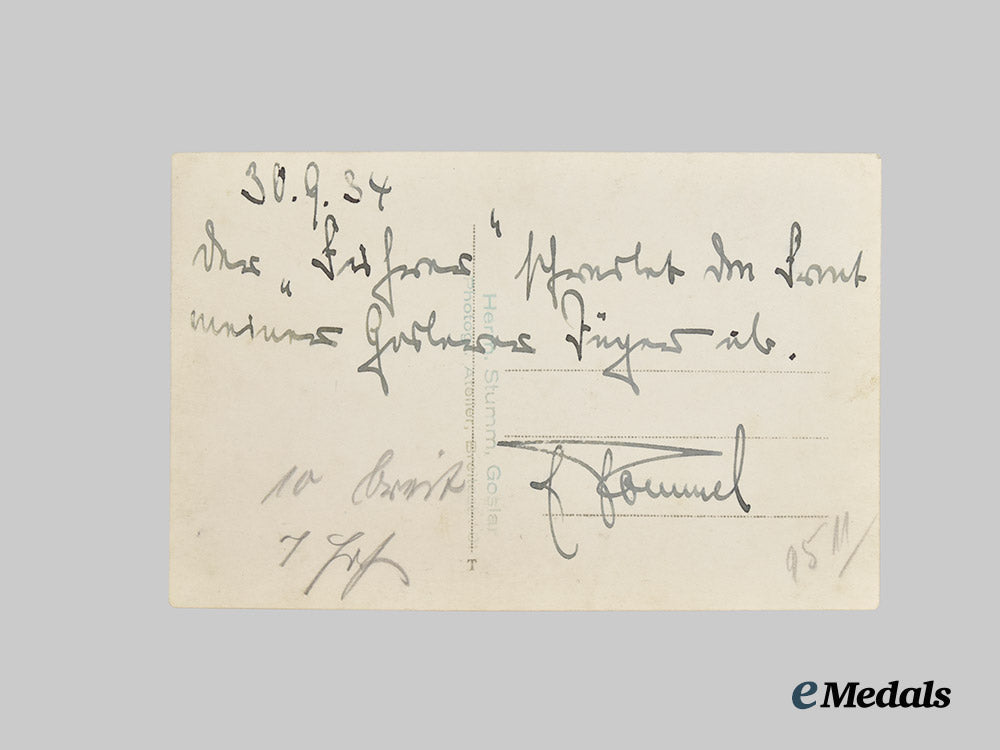 30.9.34
Der „Führer“ schreitet die Front
meiner Goslarer Jäger ab.
Herm. Stumm, Goslar
Photogr. Atelier,
10 breit
7
E Rommel
T
eMedals